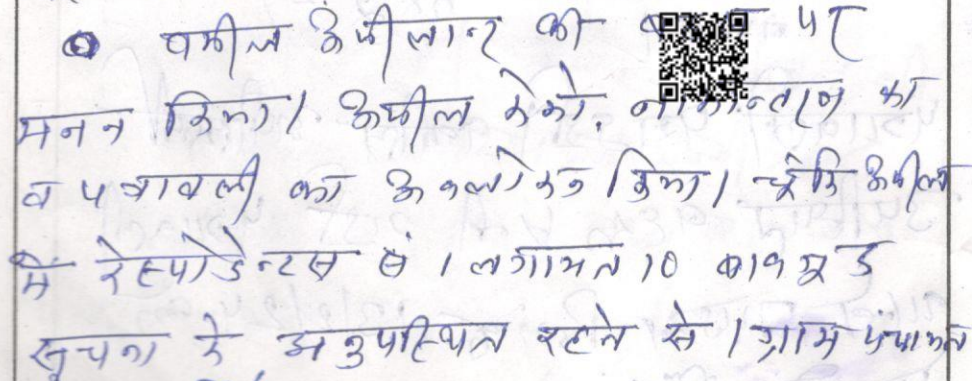 वकील अपीलान्ट की पर
मनन किया। अपील मेमो. का
व पत्रावली का अवलोकन किया। चूंकि अपील
मे रेस्पोडेन्टस सं 1 लगायत 10 बावजूद
सूचना के अनुपस्थित रहने से । ग्राम पंचायत